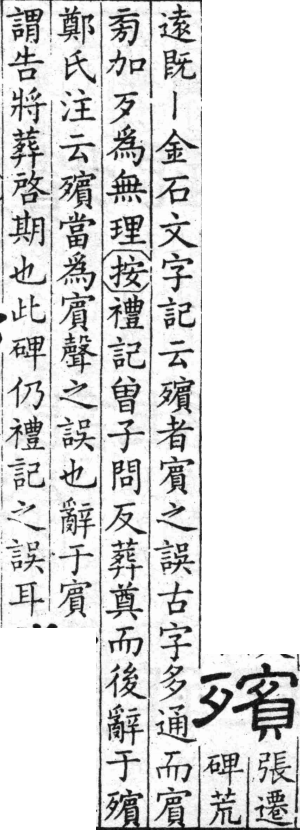 殯
張遷
碑荒
遠既丨金石文字記云殯者賔之誤古字多通而賔
旁加歹爲無理按禮記曽子問反葬奠而後辭于殯
鄭氏注云殯當爲賔聲之誤也辭于賔
謂告將葬啓期也此碑仍禮記之誤耳